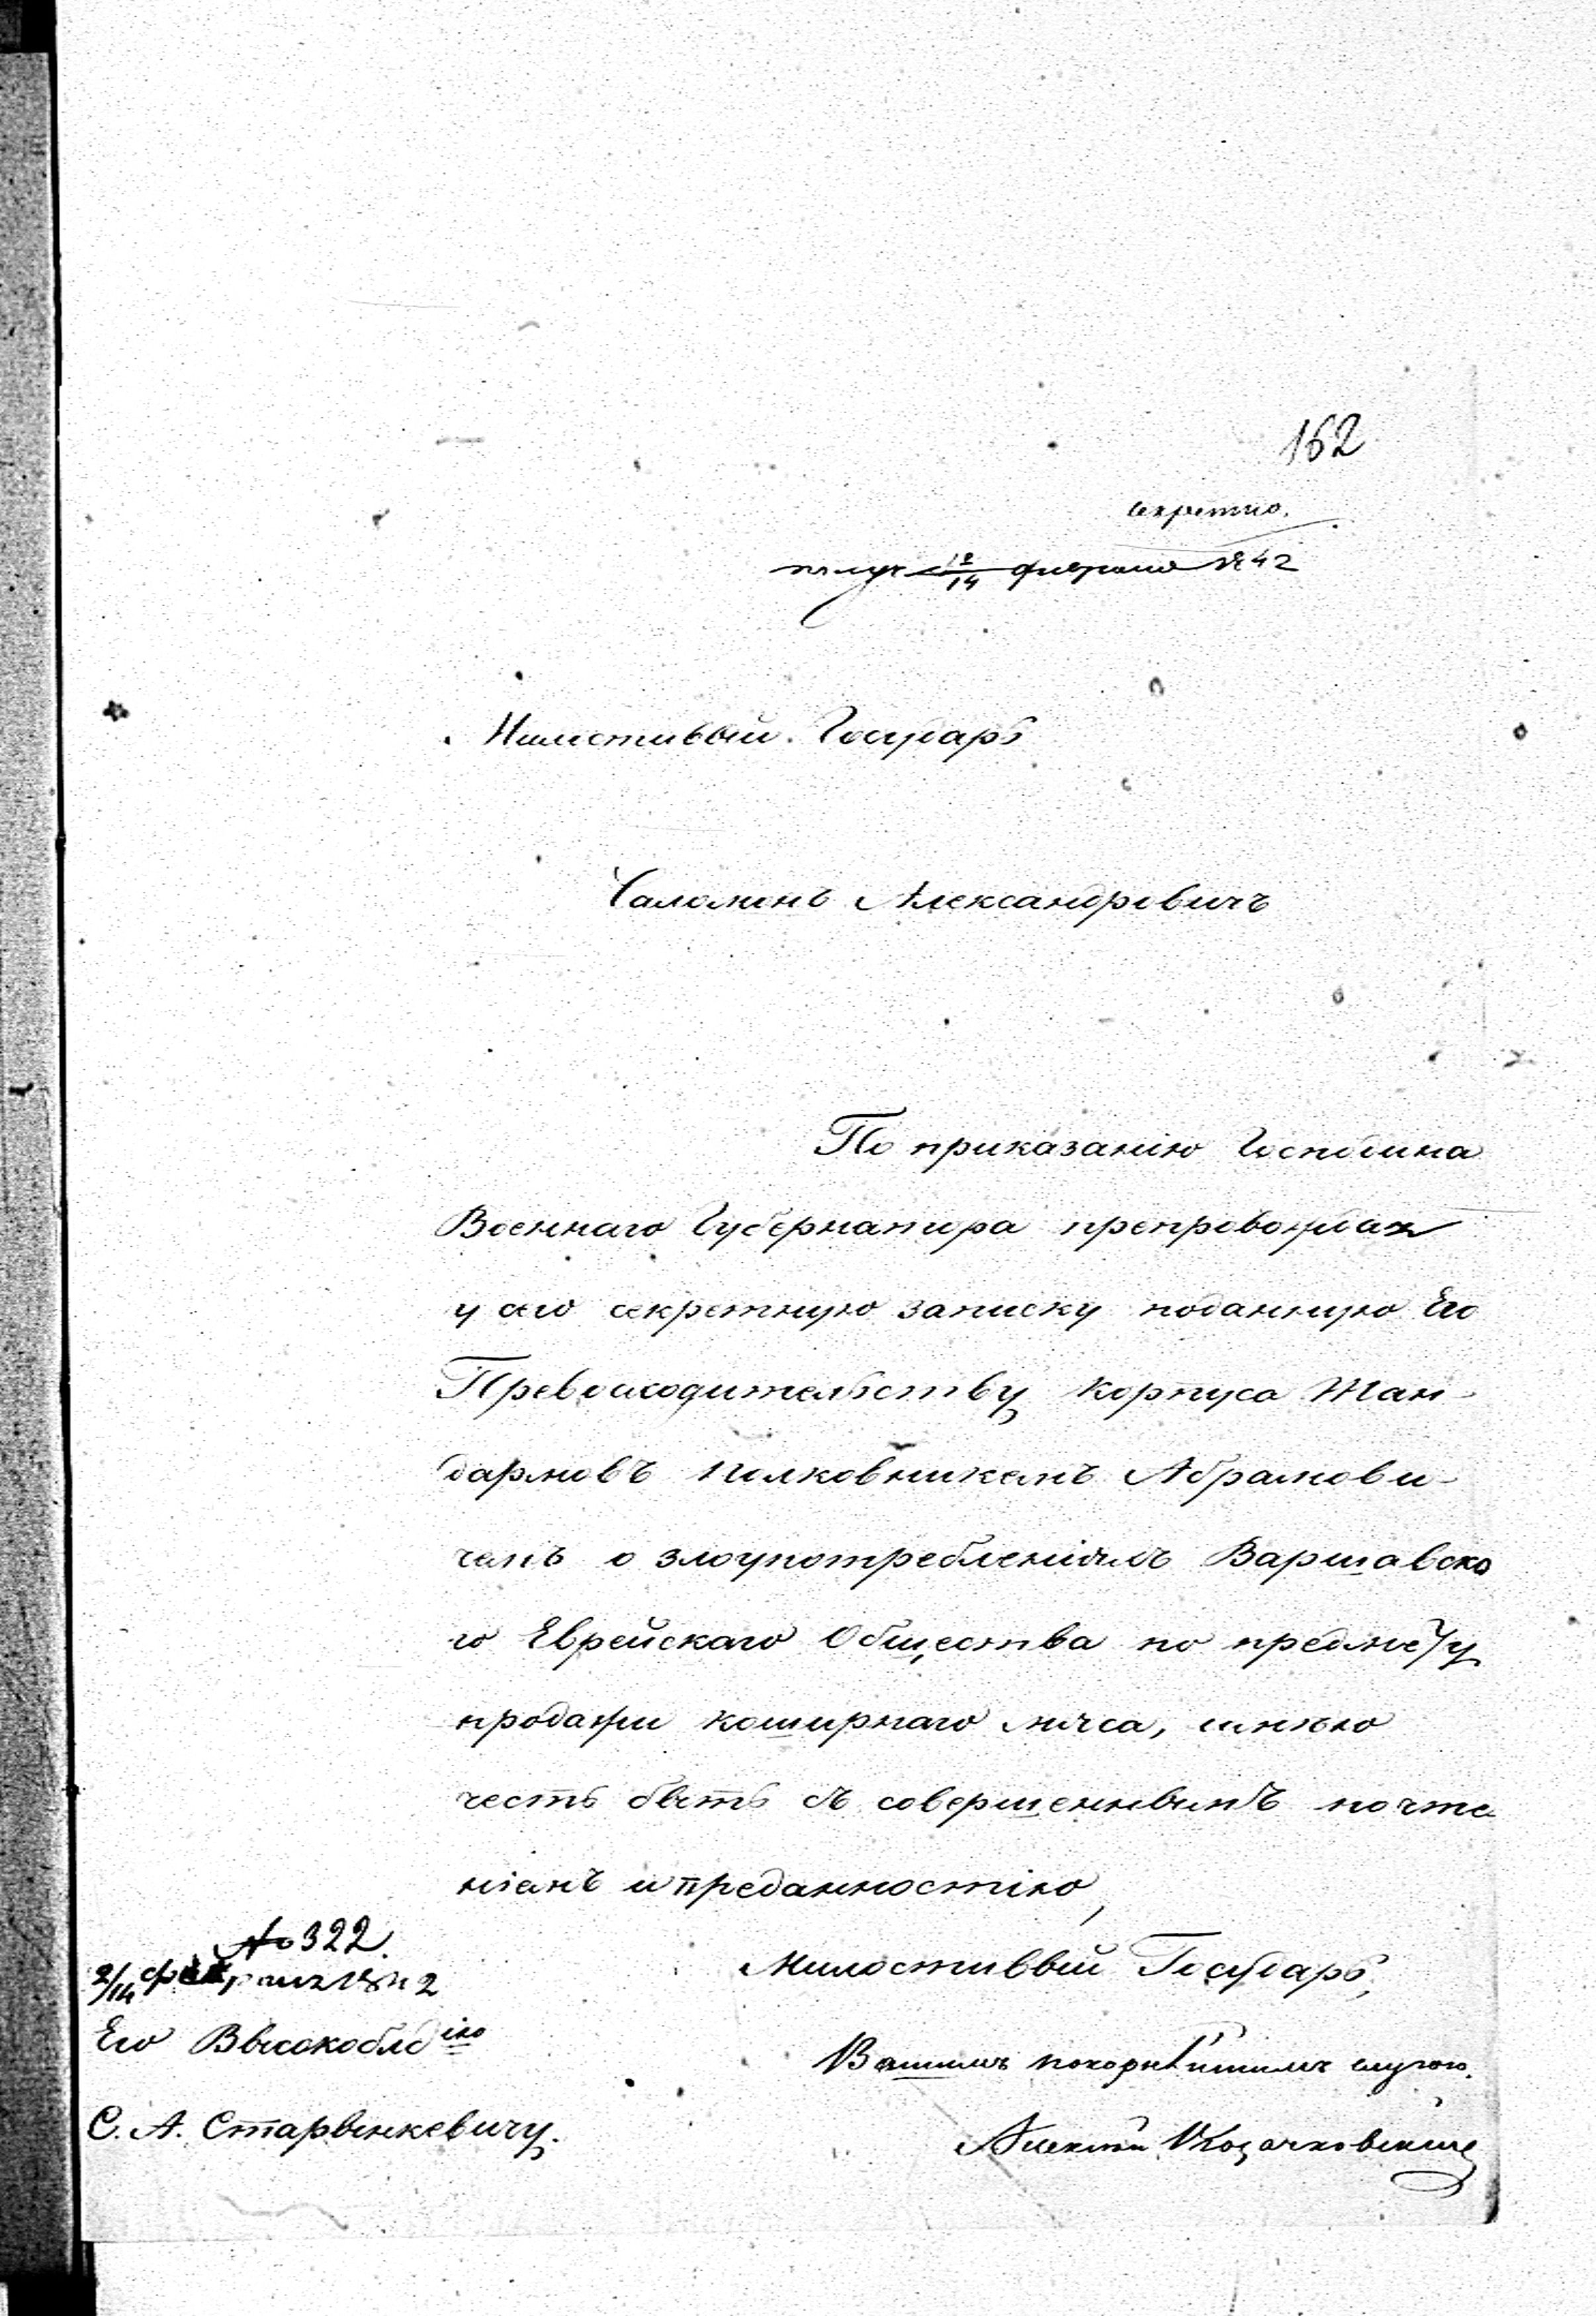 162
секретно.
получ 2/14 февраля 1842
Милостивый Государь
Саломонъ Александровичъ
По приказанію Господина
Военнаго Губернатора препровождая
у сего секретную записку поданную Его
Превосходительству Корпуса Жан-
дармовъ Полковникомъ Абрамови-
чемъ о злоупотребленіяхъ Варшавско
го Еврейскаго Общества по предмету
продажи коширнаго мяса, имѣю
честь быть съ совершеннымъ почте
ніемъ и преданностію,
Милостивый Государь,
Вашимъ покорнѣйшимъ слугою.
Алексѣй Козачковскій
№ 322.
2/14 февраля 1842
Его Высокоблг<sup>ію</sup>
С. А. Старынкевичу.